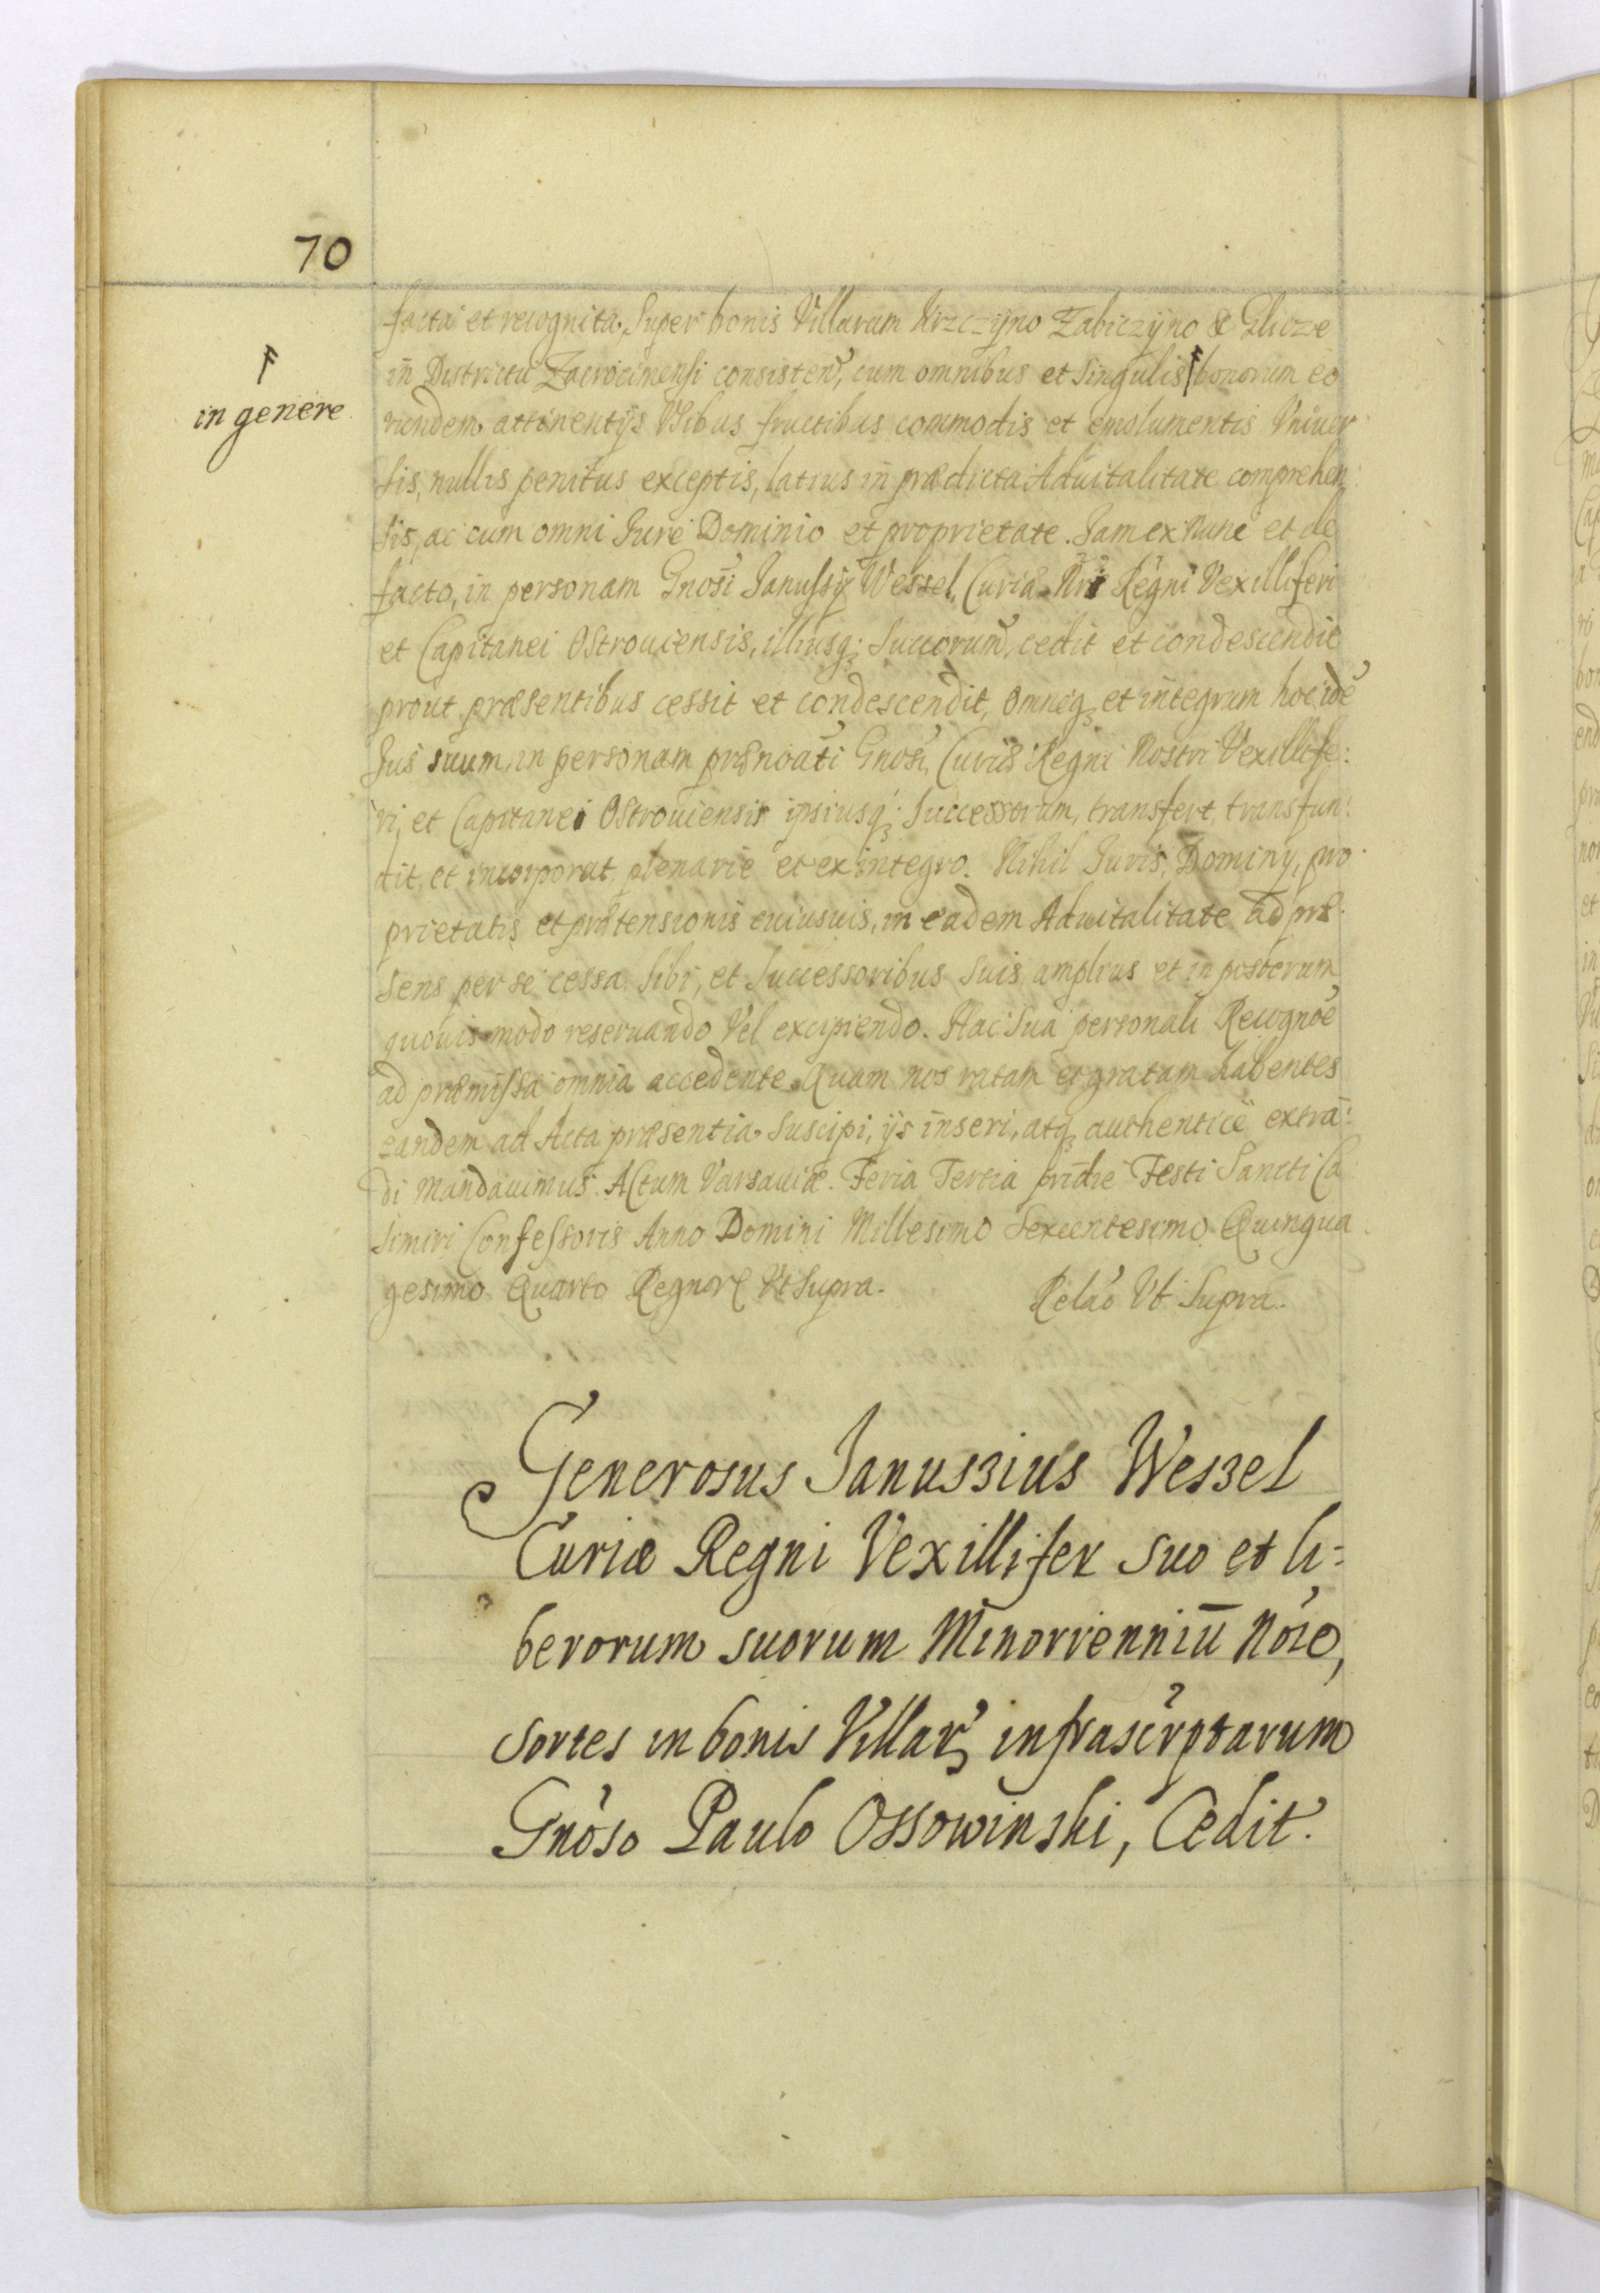 70
facta et recognita, Super bonis Villarum Krzczÿno Zabiczÿno &
in Districtu Zacrocimensi consisten̄, cum omnibus et Singulis bonorum eo
in genere
rundem attinentijs Vsibus fructibus commodis et emolumentis Vniuer
sis, nullis penitus exceptis, latius in prædicta Aduitalitate comprehen:
sis, ac cum omni Jure Dominio et proprietate. Jam ex nunc et de
facto, in personam Gnosi Janussÿ Wessel, Curiæ Nri Regni Vexilliferi
et Capitanei Ostrouiensis, illiusq; Succorum, cedit et condescendit
prout præsentibus cessit et condescendit, Omneq; et integrum hoc idē
Jus suum, in personam prænoāti Gnosi, Curiæ Regni Nostri Vexillife:
ri, et Capitanei Ostrouiensis ipsiusq; Successorum, transfert, transfun:
dit, et incorporat plenarie et ex integro. Nihil Juris, Dominÿ, pro
prietatis et prætensionis cuiusuis, in eadem Aduitalitate ad præ
sens per se cessa sibi, et Successoribus Suis amplius et in posterum
quouis modo reseruando Vel excipiendo. Hac Sua personali Recognoē
ad præmissa omnia accedente. Quam nos ratam et gratam habentes
eandem ad Acta præsentia Suscipi, ÿs inseri, atq; authenticè extra:
di mandauimus. Actum Varsauiæ. Feria Tertia pridie Festi Sancti Ca
simiri Confessoris Anno Domini Millesimo Sexcentesimo Quinqua
gesimo Quarto Regnorꝝ Vt Supra. Relāo Vt Supra.
Generosus Janussius Wessel
Curiæ Regni Vexillifer suo et li=
berorum suorum Minorrenniū nōie,
sortes in bonis Villarꝝ infrascrptarum
Gnōso Paulo Ossowinski, Cedit.